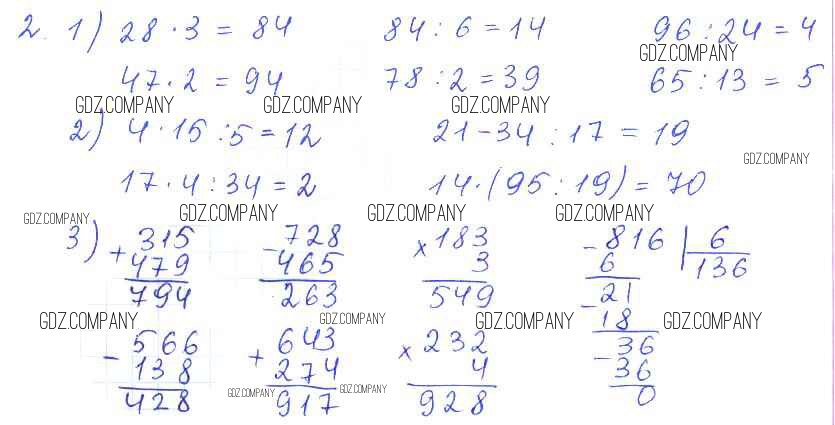 2. 1) 28 · 3 = 84 84 : 6 = 14 96 : 24 = 4
GDZ.COMPANY
47 · 2 = 94 78 : 2 = 39 65 : 13 = 5
GDZ.COMPANY GDZ.COMPANY GDZ.COMPANY
2) 4 · 15 : 5 = 12 21 - 34 : 17 = 19
GDZ.COMPANY
17 · 4 : 34 = 2 14 · (95 : 19) = 70
GDZ.COMPANY GDZ.COMPANY GDZ.COMPANY GDZ.COMPANY
3) + 315 - 728 × 183 - 816 | 6
479 465 3 6 136
794 263 549 - 21
GDZ.COMPANY GDZ.COMPANY GDZ.COMPANY 18 GDZ.COMPANY
- 566 + 643 × 232 - 36
138 274 4 36
GDZ.COMPANY GDZ.COMPANY
428 917 928 0